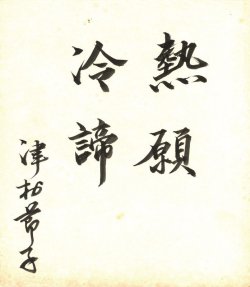 熱願
冷諦
津村節子